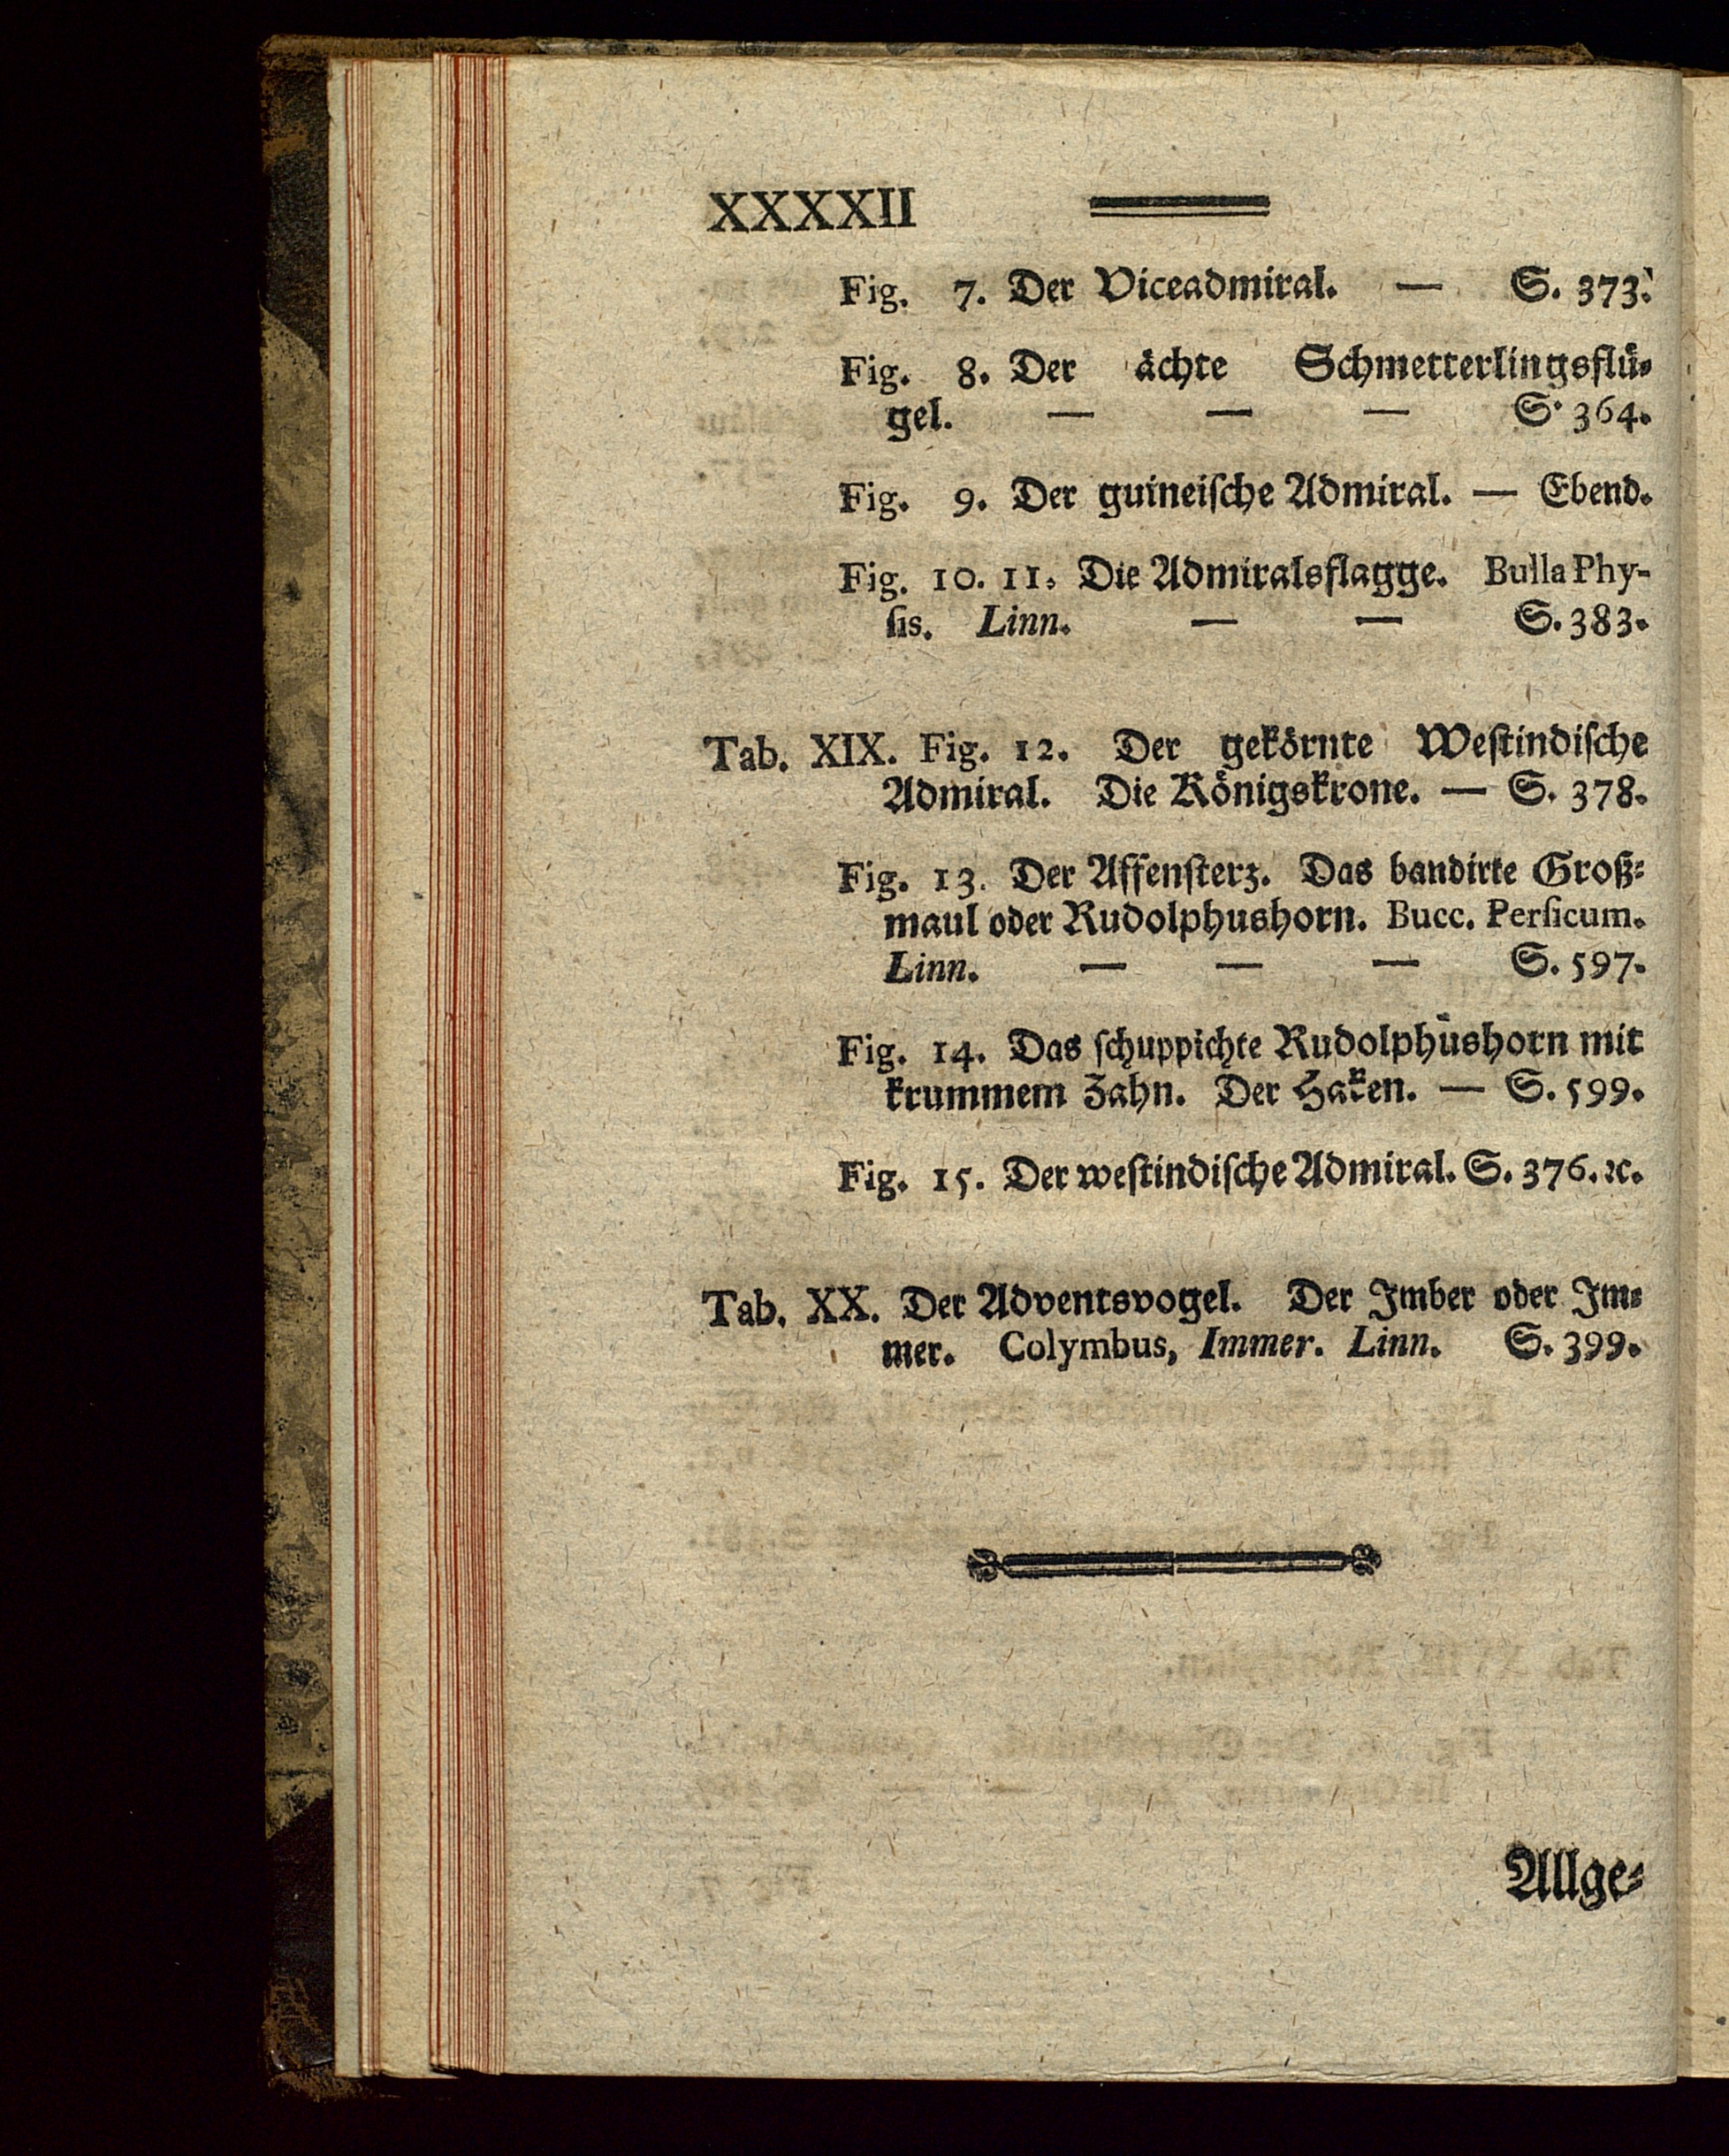 XXXXII
Fig. 7. Der Viceadmiral. — S. 373.
Fig. 8. Der ächte Schmetterlingsflü-
gel. — — — S. 364.
Fig. 9. Der guineiſche Admiral. — Ebend.
Fig. 10. 11. Die Admiralsflagge. Bulla Phy-
ſis. Linn. — — S. 383.
Tab. XIX. Fig. 12. Der gekörnte Weſtindiſche
Admiral. Die Königskrone. — S. 378.
Fig. 13. Der Affenſterz. Das bandirte Groß-
maul oder Rudolphushorn. Bucc. Perſicum.
Linn. — — — S. 597.
Fig. 14. Das ſchuppichte Rudolphushorn mit
krummem Zahn. Der Haken. — S. 599.
Fig. 15. Der weſtindiſche Admiral. S. 376. ꝛc.
Tab. XX. Der Adventsvogel. Der Imber oder Im-
mer. Colymbus, Immer. Linn. S. 399.
Allge-